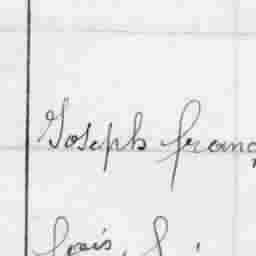 Joseph franç
Louis